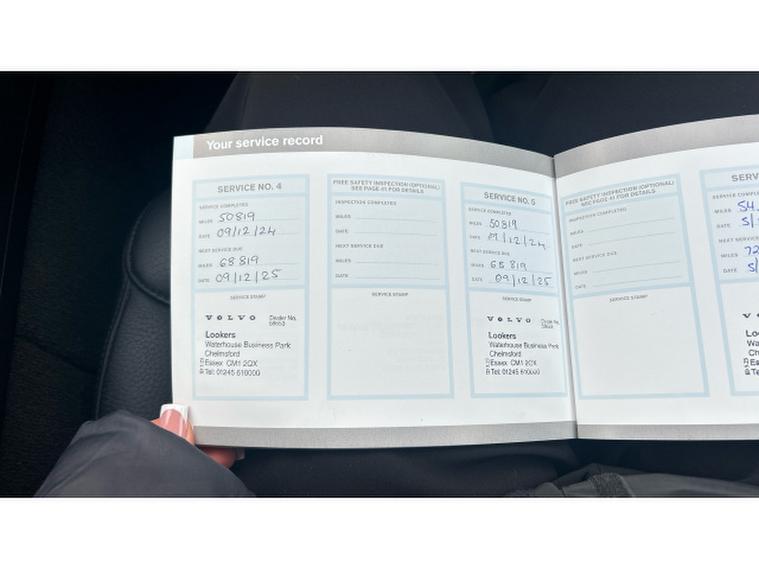 Your service record
SERVICE NO. 4
SERVICE COMPLETED
MILES 50819
DATE 09/12/24
NEXT SERVICE DUE
MILES 68819
DATE 09/12/25
SERVICE STAMP
VOLVO Dealer No.
Lookers
Waterhouse Business Park
Chelmsford
Essex CM1 2QX
Tel: 01245 610000
FREE SAFETY INSPECTION (OPTIONAL)
SEE PAGE 41 FOR DETAILS
INSPECTION COMPLETED
MILES
DATE
NEXT SERVICE DUE
MILES
DATE
SERVICE STAMP
SERVICE NO. 5
SERVICE COMPLETED
MILES 50819
DATE 09/12/24
NEXT SERVICE DUE
MILES 68819
DATE 09/12/25
SERVICE STAMP
VOLVO
Lookers
Waterhouse Business Park
Chelmsford
Essex CM1 2QX
Tel: 01245 610000
FREE SAFETY INSPECTION (OPTIONAL)
SEE PAGE 41 FOR DETAILS
INSPECTION COMPLETED
MILES
DATE
NEXT SERVICE DUE
MILES
DATE
SERVICE STAMP
SERV
SERVICE COMPL
MILES 54
DATE 5/
NEXT SERVICE
MILES 72
DATE 5/
VOL
Look
Wa
Che
Ess
Tel